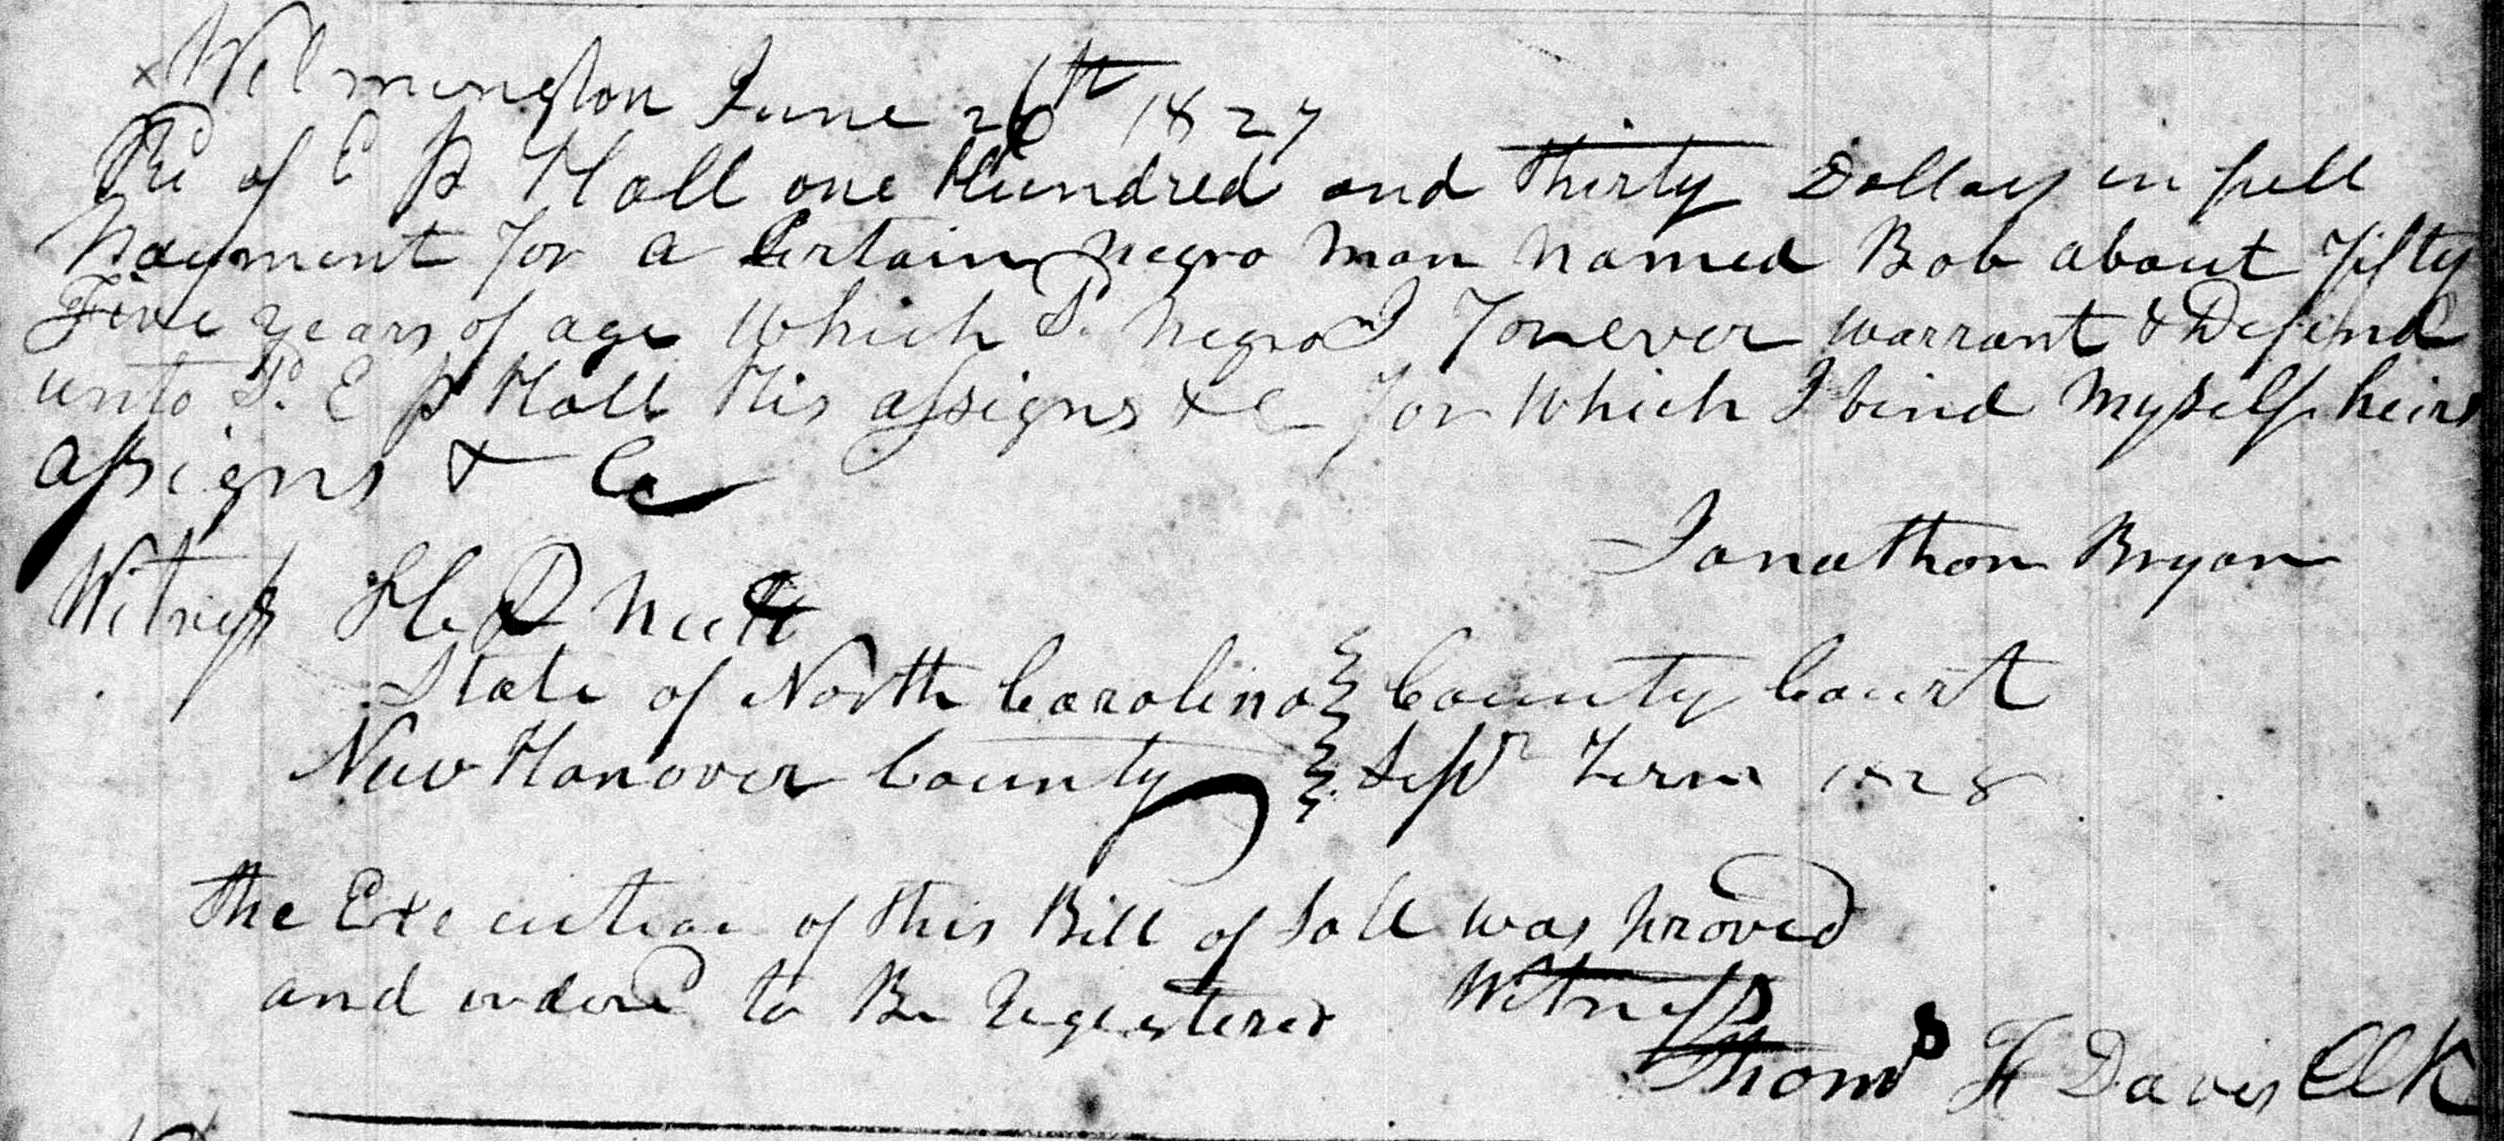 x Wilmington June 26th 1827
Rec of E P Hall one Hundred and thirty Dollars in full
Payment for a Certain negro man named Bob about Fifty
Five years of age which Sd. negro I Forever warrant & Defend
unto Sd. E P Hall His assigns &C For which I bind myself heirs
assigns & Co
Jonathon Bryan
Witness H D
State of North Carolina } County Court
New Hanover County } Sepr Term 1828
the Execution of this Bill of Sale was proved
and ordered to Be Registered Witness
Thoms F Davis Clk